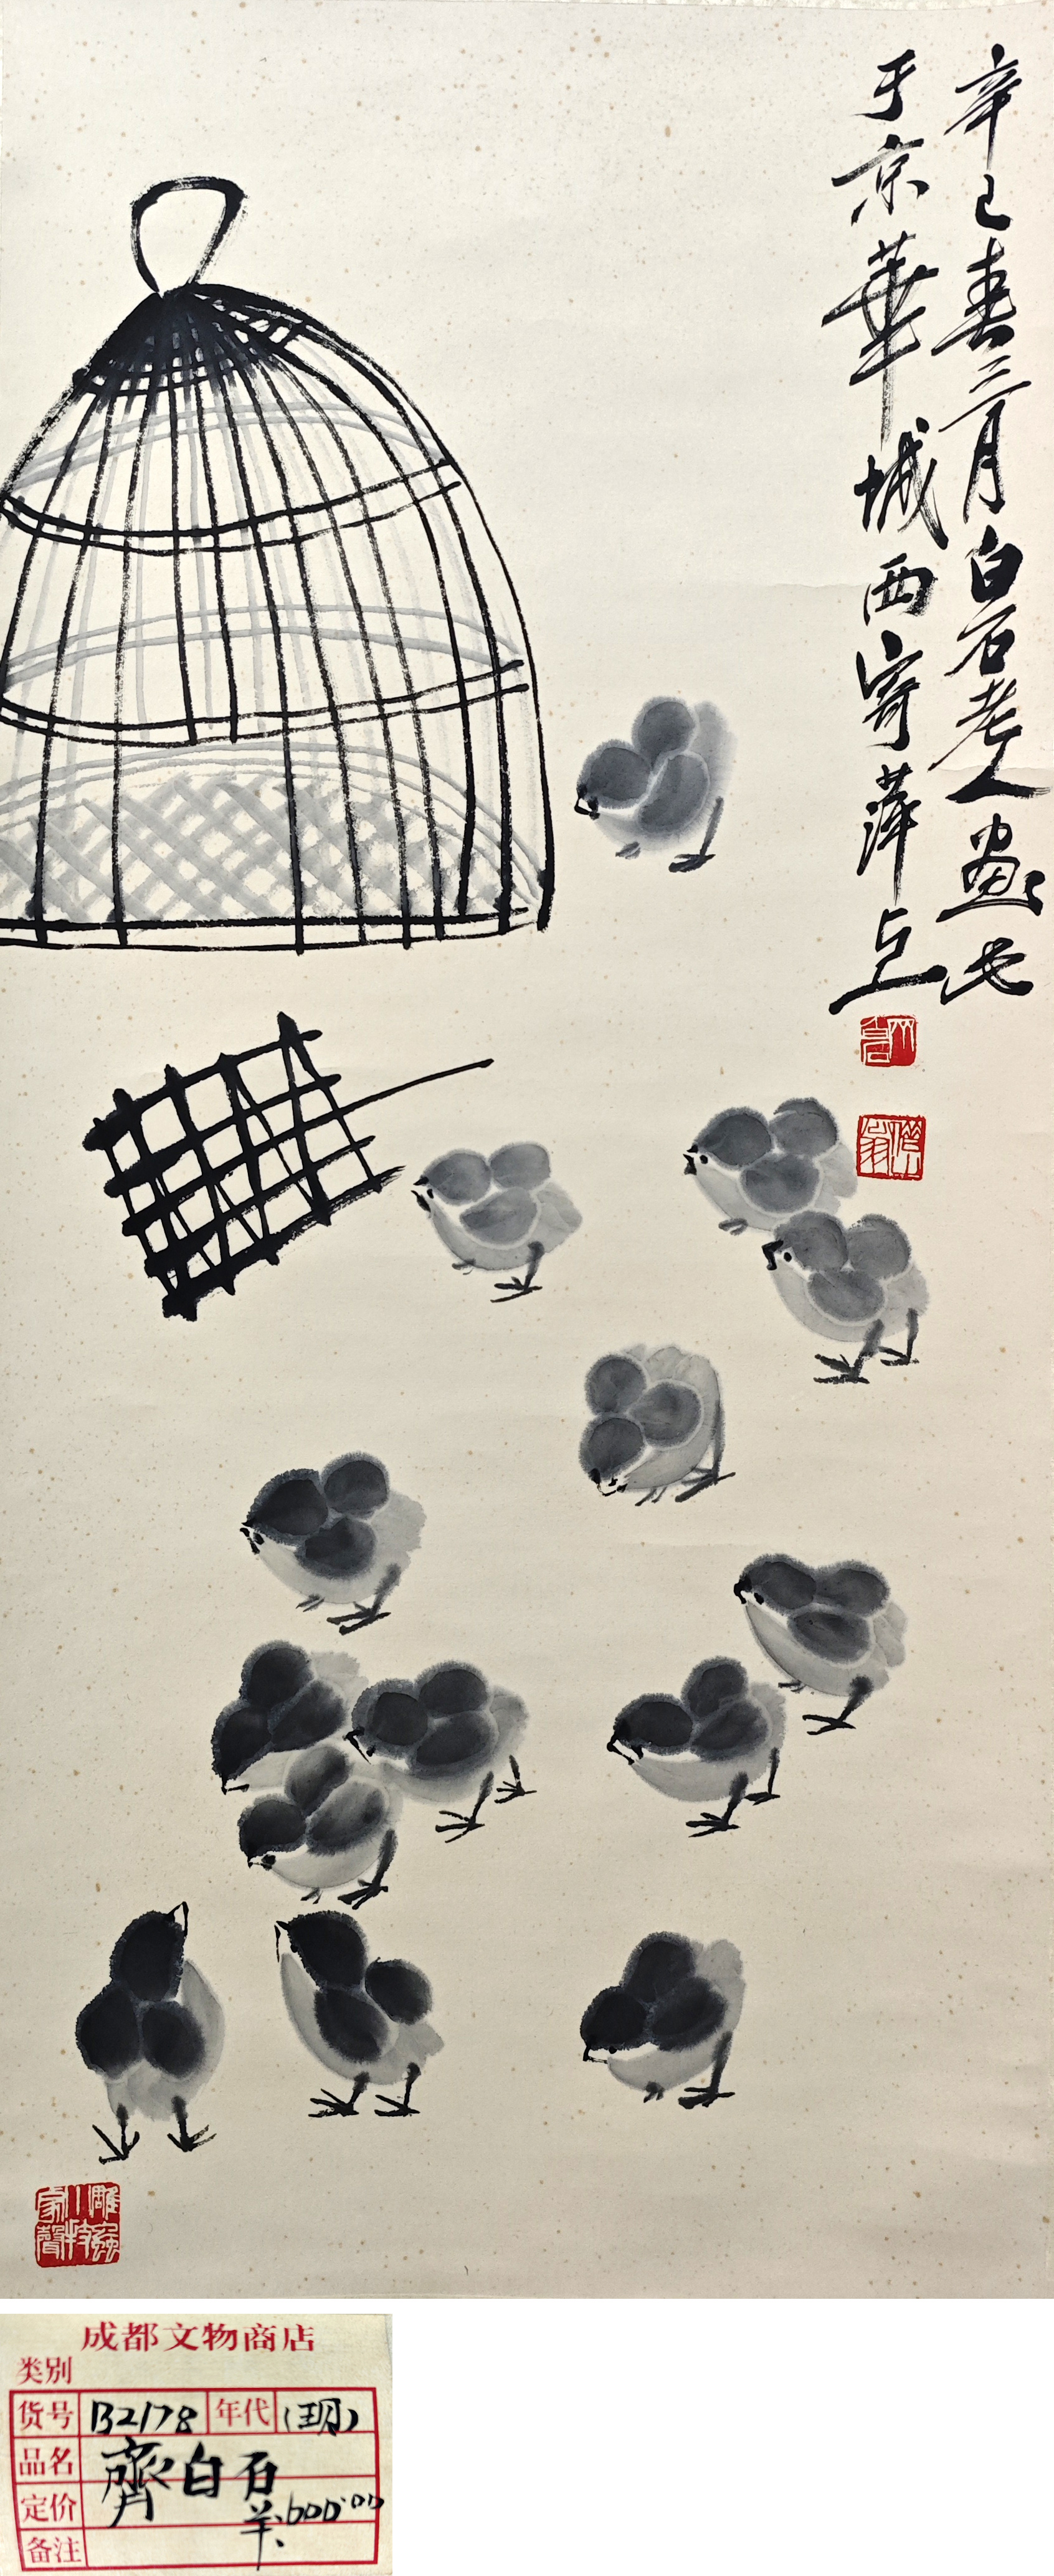 辛巳春三月白石老人画也
于京華城西寄萍堂
雕蟲小技家聲
成都文物商店
类别
货号 B2178 年代（现）
品名 齊白石
定价 羊600.00
备注